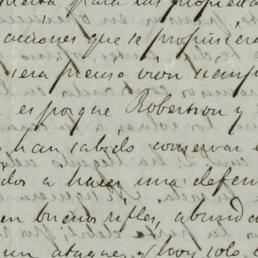 para las propieda
acciones que se propusiera
sera
es porque Robertson y
han sabido conservar
dos a hacer una defen
en buenos rifles, abunda
un ataque, y hoy solo